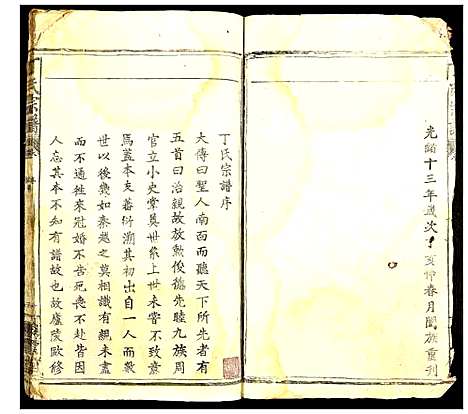 光緒十三年歲次丁亥仲春月闔族重刊
丁氏宗譜序
大傳曰聖人南面而聽天下所先者有
五首曰治親故放勲俊德先睦九族周
官立小史掌奠世系上世未嘗不致意
焉蓋本支蕃衍溯其初出自一人而數
世以後幾如秦越之莫相識有親未盡
而不通徃來冠婚不告死喪不赴皆因
人忘其本不知有譜故也故廬陵歐修